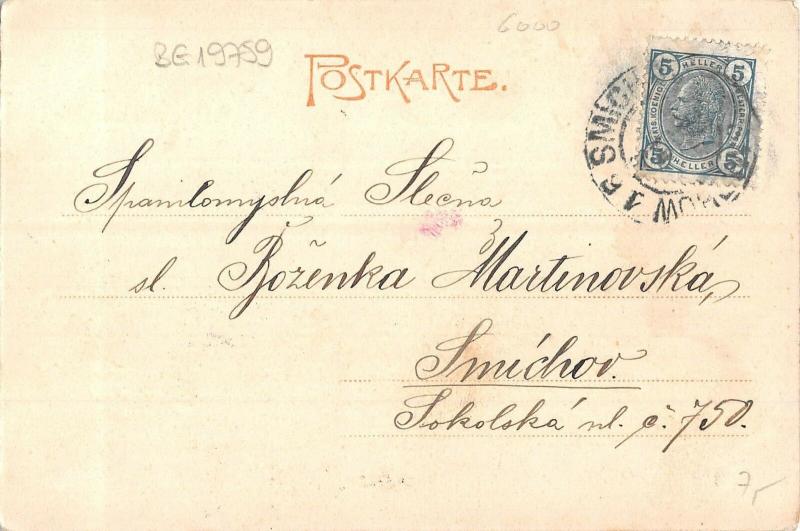 BE19759
6000
POSTKARTE.
5 HELLER 5
5 HELLER 5
SMICHOW 1
Spanilomyslná Slečna
sl. Boženka Martinovská,
Smíchov.
Sokolská ul. č. 750.
7,-